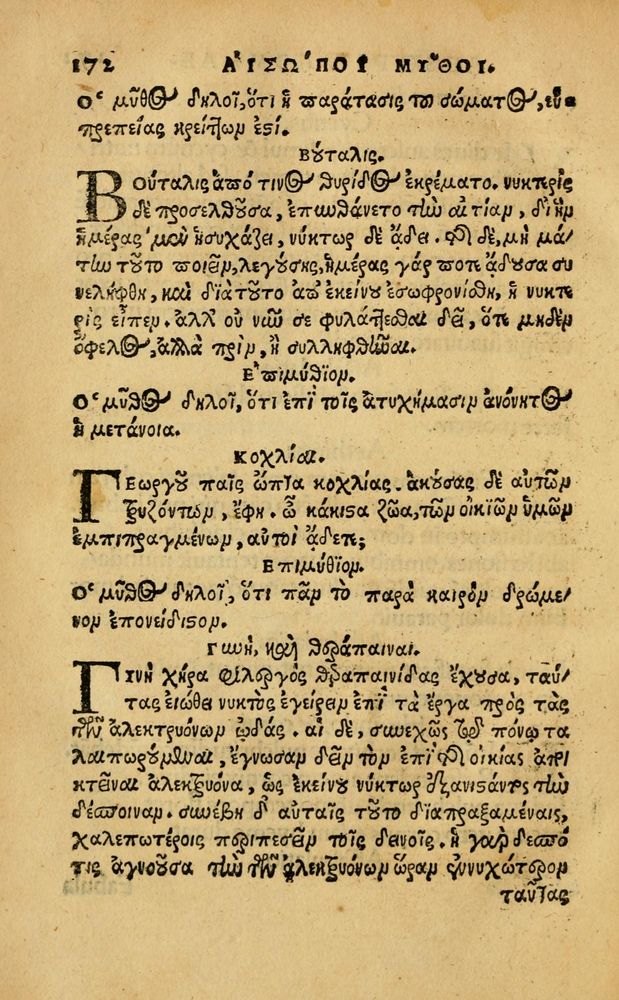 172 ΑΙΣΩΠΟΥ ΜΥΘΟΙ.
Ὁ μῦθος δηλοῖ, ὅτι ἡ παράτασις τοῦ σώματος, εὐ-
πρεπείας κρείττων ἐστί.
Βύταλις.
Βούταλις ἀπό τινος θυρίδος ἐκρέματο. νυκτερὶς
δὲ προσελθοῦσα, ἐπυνθάνετο τὴν αἰτίαν, δι' ἣν
ἡμέρας μὲν ἡσυχάζει, νύκτωρ δὲ ᾄδει. τῆς δὲ, μὴ μά-
την τοῦτο ποιεῖν, λεγούσης, ἡμέρας γάρ ποτε ᾄδουσα συ
νελήφθη, καὶ διὰ τοῦτο ἀπ' ἐκείνου ἐσωφρονίσθη, ἡ νυκτε
ρὶς εἶπεν. ἀλλ' οὐ νῦν σε φυλάττεσθαι δεῖ, ὅτε μηδὲν
ὄφελος, ἀλλὰ πρὶν, ἢ συλληφθῆναι.
Ἐπιμύθιον.
Ὁ μῦθος δηλοῖ, ὅτι ἐπὶ τοῖς ἀτυχήμασιν ἀνόνητος
ἡ μετάνοια.
Κοχλίαι.
Γεωργοῦ παῖς ὤπτα κοχλίας. ἀκούσας δὲ αὐτῶν
τρυζόντων, ἔφη. ὦ κάκιστα ζῶα, τῶν οἰκιῶν ὑμῶν
ἐμπιπραμένων, αὐτοὶ ᾄδετε;
Ἐπιμύθιον.
Ὁ μῦθος δηλοῖ, ὅτι πᾶν τὸ παρὰ καιρὸν δρώμε-
νον ἐπονείδιστον.
Γυνὴ, καὶ θεράπαιναι.
Γυνὴ χήρα φιλεργὸς θεραπαινίδας ἔχουσα, ταύ-
τας εἰώθει νυκτὸς ἐγείρειν ἐπὶ τὰ ἔργα πρὸς τὰς
τῶν ἀλεκτρυόνων ᾠδάς. αἱ δὲ, συνεχῶς τῷ πόνῳ τα
λαιπωρούμεναι, ἔγνωσαν δεῖν τὸν ἐπὶ τῆς οἰκίας ἀπο
κτεῖναι ἀλεκτρυόνα, ὡς ἐκείνου νύκτωρ ἐξανιστάντος τὴν
δέσποιναν. συνέβη δ' αὐταῖς τοῦτο διαπραξαμέναις,
χαλεπωτέροις περιπεσεῖν τοῖς δεινοῖς. ἡ γὰρ δεσπό
τις ἀγνοοῦσα τὴν τῶν ἀλεκτρυόνων ὥραν ἐννυχώτερον
ταύτας